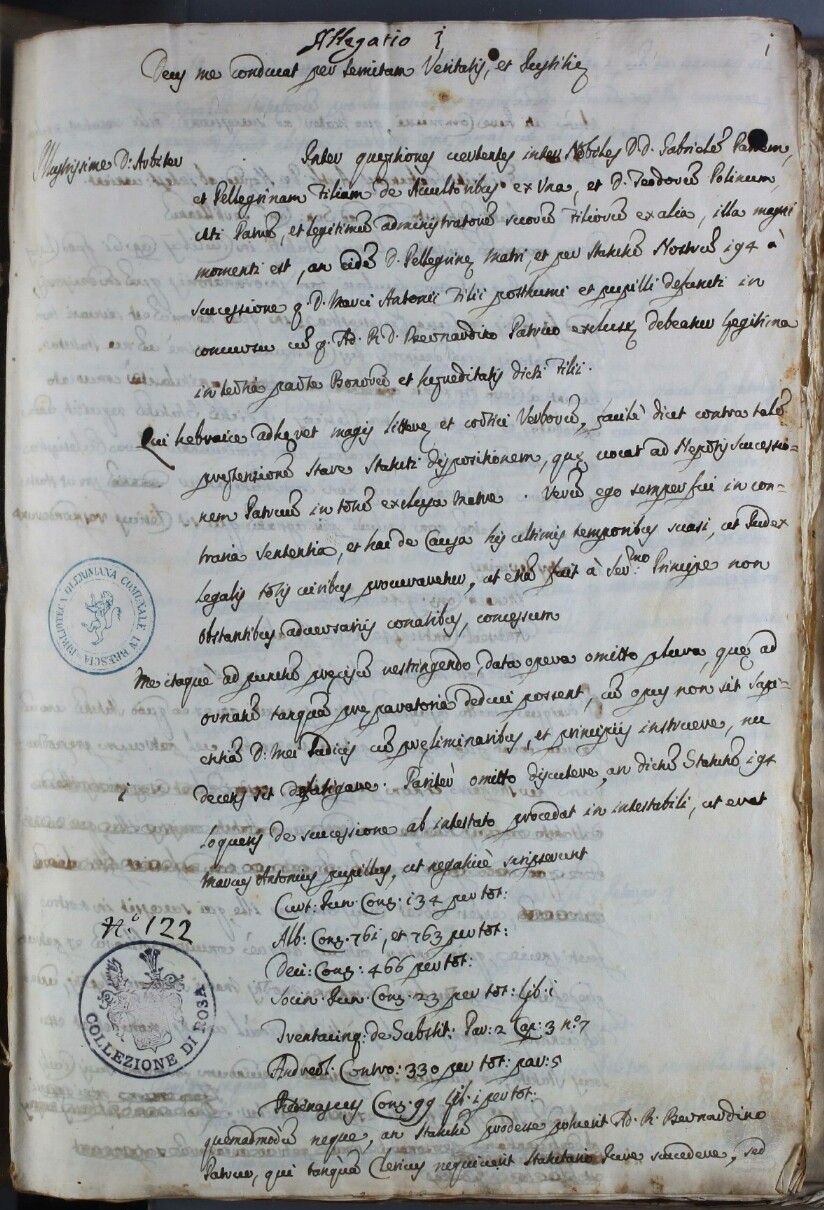 Allegatio i
i
Deus me conducat per semitam Veritatis, et Justitiæ
Illustrissime D: Arbiter
Inter quæstiones vertentes inter Nobiles DD. Gabrielẽ Patrem,
et Pellegrinam Filiam de ex Una, et D. Teodorũ Polinum,
uti Patrẽ, et legitimũ administratorẽ suorũ Filiorũ ex alia, illa magni
momenti est, an eidẽ D. Pellegrinæ Matri, et per Statutũ Nostrũ 194 à
successione q. D. Marci Antonii Filii posthumi et pupilli defuncti in
concursu cũ q. Ad. R. D. Bernardino Patruo exclusæ debeatur legitima
in tertia parte Bonorũ et hæreditatis dicti Filii.
Qui hebraice adhæret magis litteræ et cortici Verborũ, facilè dicet contra talẽ
prætensionẽ stare Statuti dispositionem, quæ vocat ad Nepotis successio=
nem Patruũ in totũ exclusa Matre. Verũ ego semper fui in con=
traria sententia, et hac de Causa his ultimis temporibus suasi, ut Judex
legalis totis viribus procuraretur, ut etiã fuit à Ser.mo Principe non
obstantibus adversariis conatibus, concessum
Me itaquè ad punctũ præcisũ restringendo, data opera omitto plura, quæ ad
ornatũ tanquã præparatoria deduci possent, cũ opus non sit Sapi=
entiã D: mei Judicis cũ præliminaribus, et principiis instruere, nec
decens sit Pariter omitto discutere, an dictũ Statutũ 194
i
loquens de successione ab intestato procedat in intestabili, ut erat
Marcus Antonius pupillus, ut negativè scripserunt
Curt: Jun: Cons: 134 per tot:
Alb: Cons. 761, et 763 per tot:
Deci: Cons: 466 per tot:
Socin: Jun: Cons. 23 per tot: lib: i
de Substit: Par: 2 Cap: 3 nº 7
Andreol: Contro: 330 per tot: par: 5
Cons: 99 lib. i per tot:
quemadmodũ neque, an Statutũ prodesse potuerit Ad. R. Bernardino
Patruo, qui tanquã Clericus nequiverit Statutario Jure succedere, sed
Nº 122
BIBLIOTECA QUERINIANA COMUNALE BRESCIA
COLLEZIONE DI ROSA